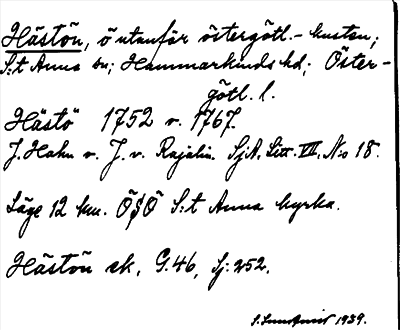 Hästön, ö utanför östergötl.-kusten;
S:t Anna sn; Hammarkinds hd; Öster-
götl. l.
Hästö 1752 o. 1767.
J. Hahn o. J. v. Rajalin. SjA. Litt. VII. N:o 18.
Läge 12 km. ÖSÖ S:t Anna kyrka.
Hästön ek, G.46, Sj:252.
S. Lundqvist 1939.